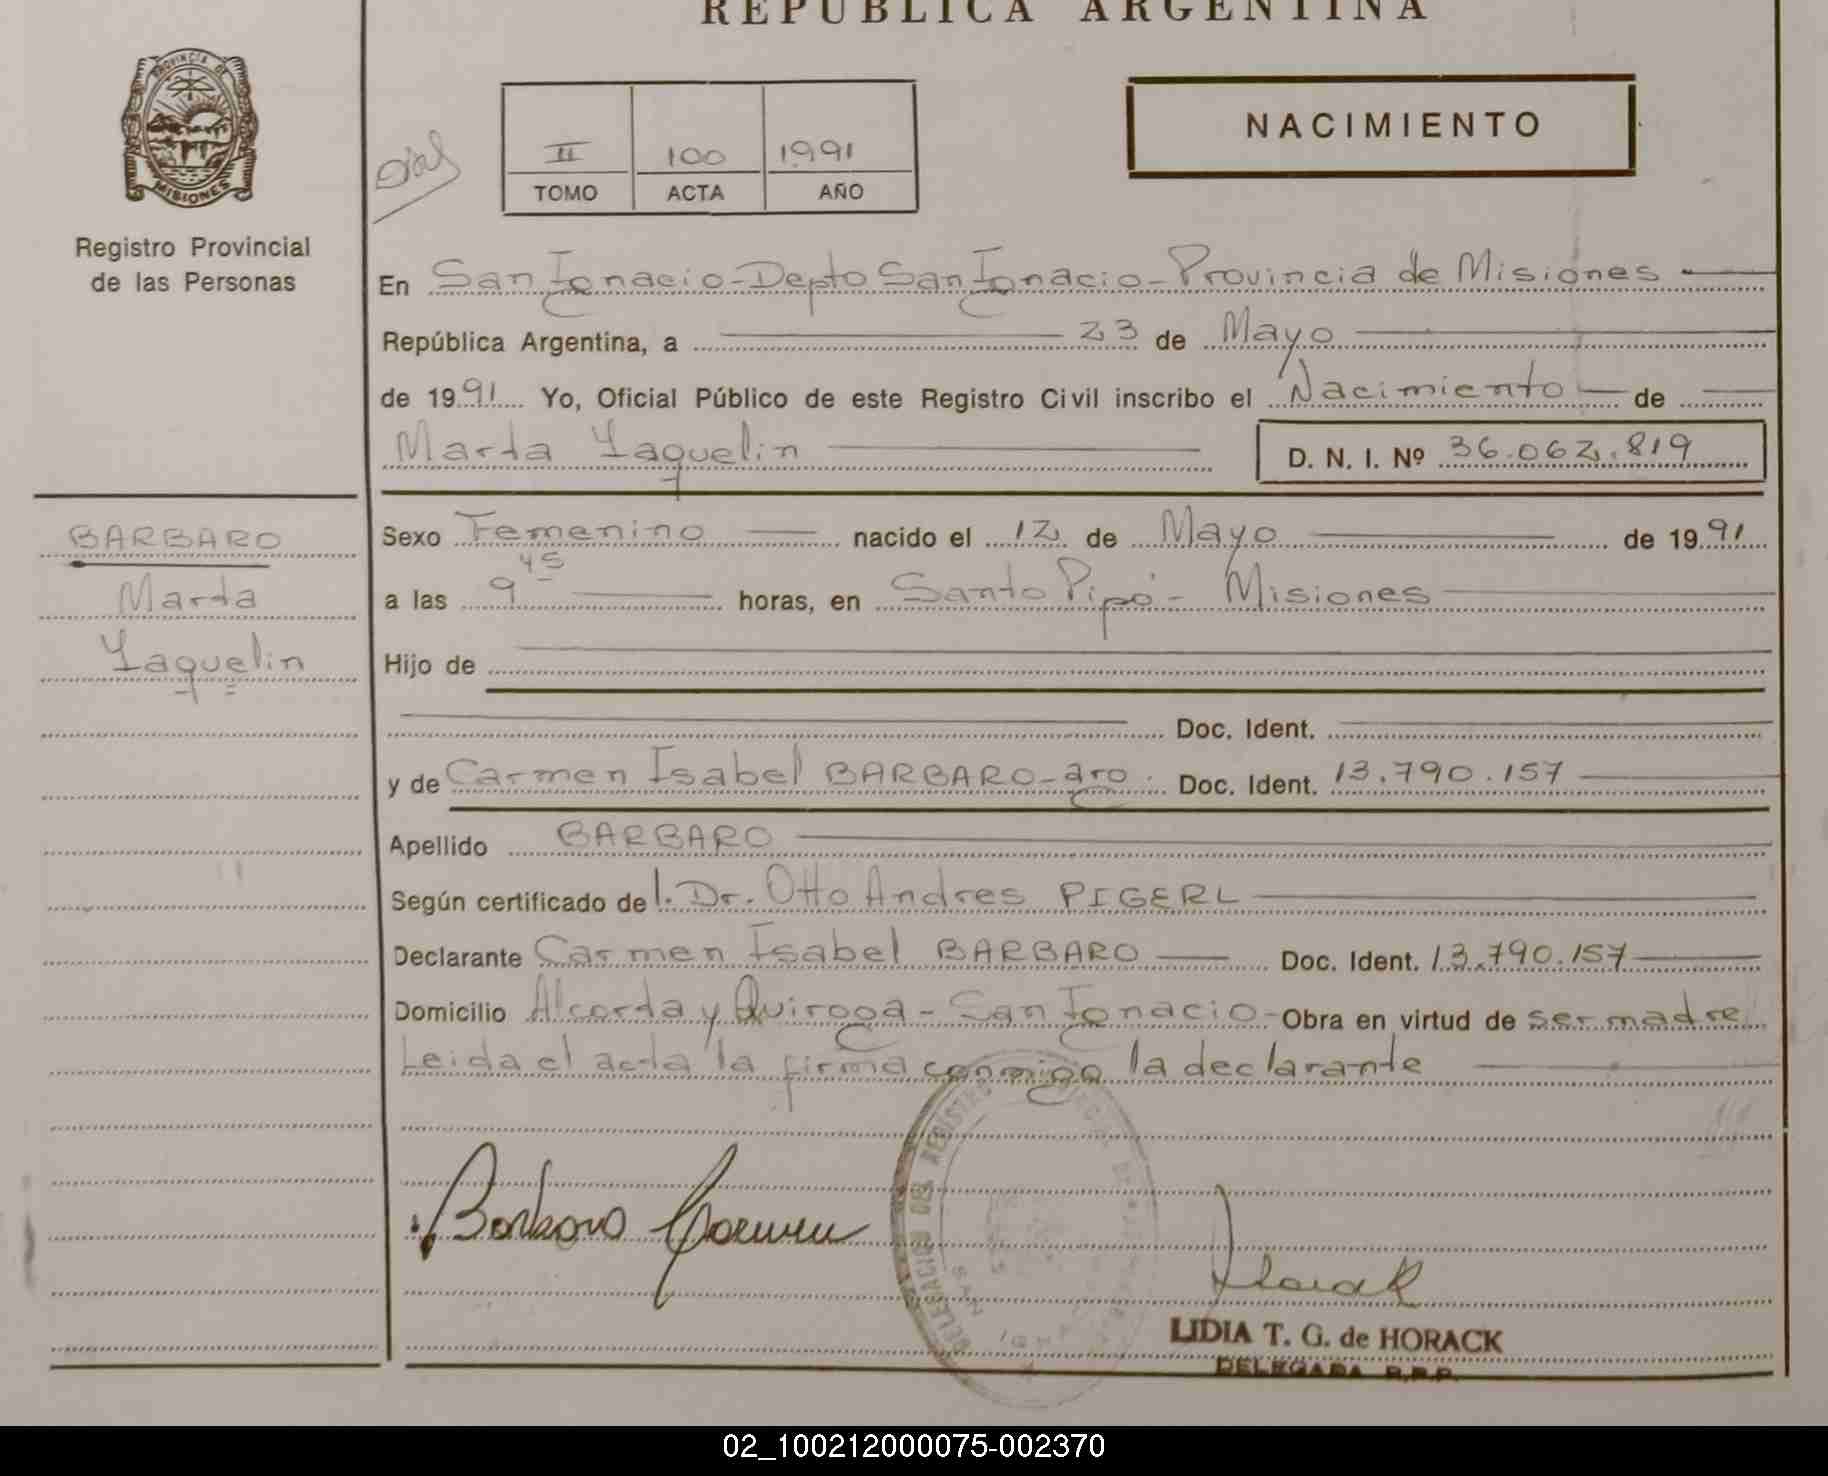 REPUBLICA ARGENTINA
PROVINCIA DE
MISIONES
Registro Provincial
de las Personas
II 100 1991
TOMO ACTA AÑO
NACIMIENTO
En San Ignacio - Depto San Ignacio - Provincia de Misiones
República Argentina, a 23 de Mayo
de 1991 Yo, Oficial Público de este Registro Civil inscribo el Nacimiento de
Marta Yaquelin D. N. I. Nº 36.062.819
BARBARO
Marta
Yaquelin
Sexo Femenino nacido el 12 de Mayo de 1991
a las 9 45 horas, en Santo Pipó - Misiones
Hijo de
Doc. Ident.
y de Carmen Isabel BARBARO - arg. Doc. Ident. 13.790.157
Apellido BARBARO
Según certificado del Dr. Otto Andres PIGERL
Declarante Carmen Isabel BARBARO Doc. Ident. 13.790.157
Domicilio Alcorta y Quiroga - San Ignacio - Obra en virtud de ser madre
Leida el acta la firma conmigo la declarante
Barbaro Carmen
DELEGACION DEL REGISTRO
SAN
Horack
LIDIA T. G. de HORACK
DELEGADA R.P.P.
02_100212000075-002370